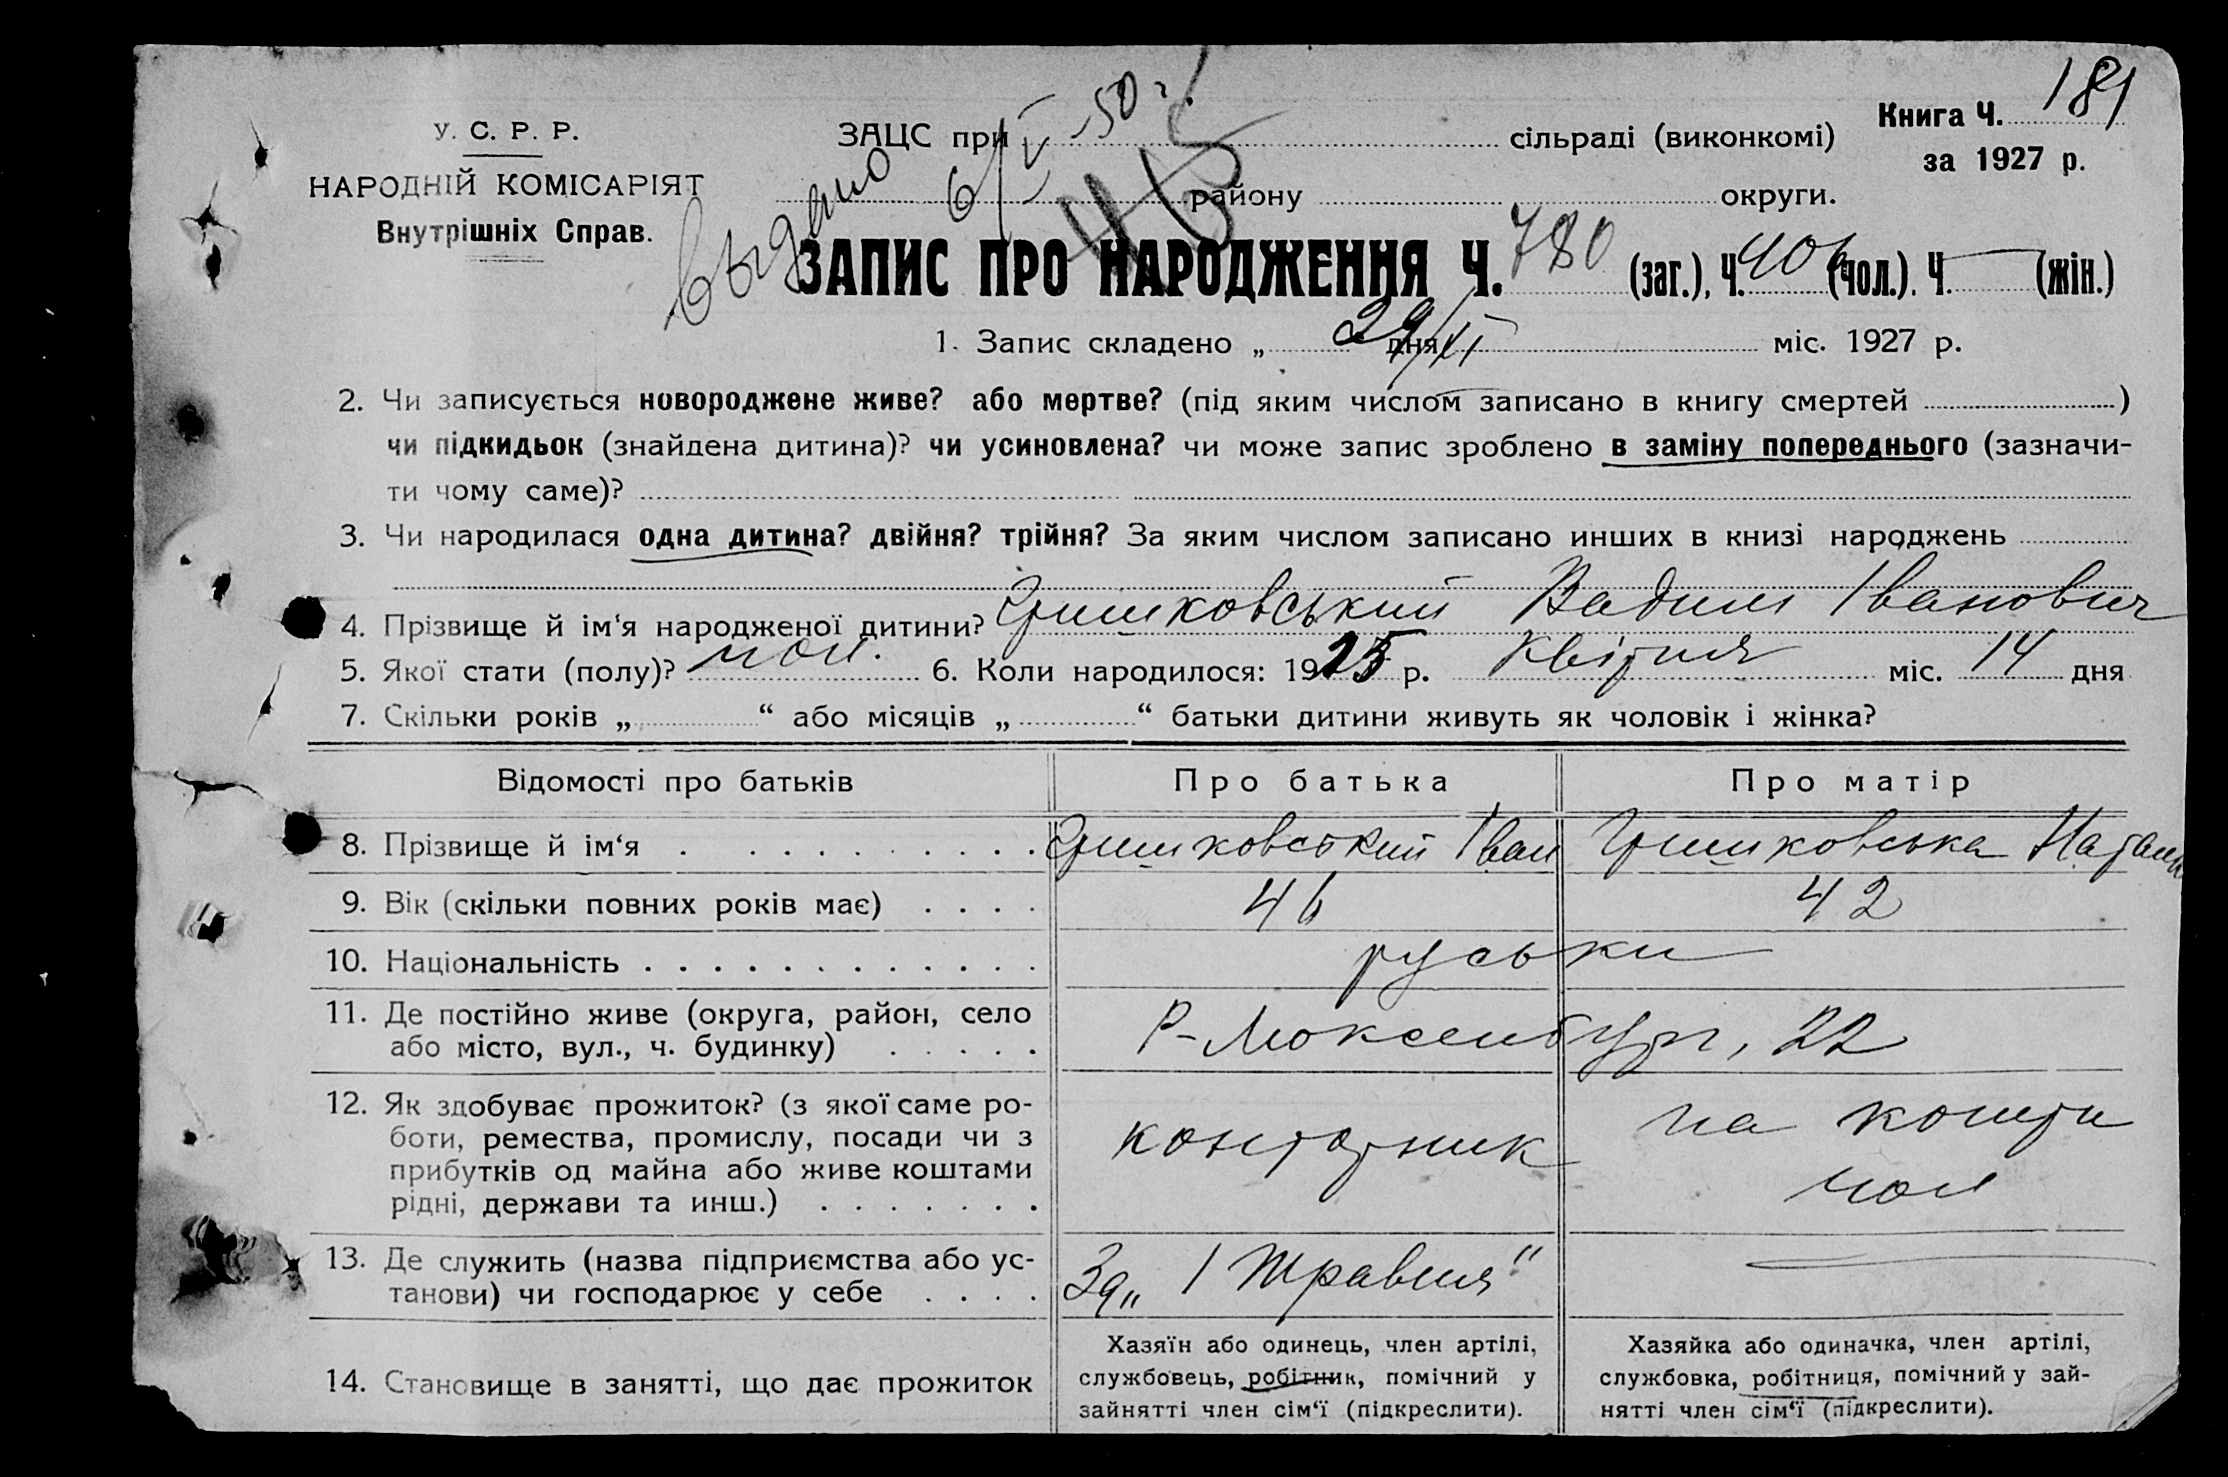 181
У. С. Р. Р.
НАРОДНІЙ КОМІСАРІЯТ
Внутрішніх Справ.
ЗАЦС при сільраді (виконкомі)
району округи.
Книга Ч.
за 1927 р.
выдано 6/V-50 г.
ЗАПИС ПРО НАРОДЖЕННЯ Ч. 780 (заг.), Ч. 406 (чол.). Ч. — (жін.)
1. Запис складено „ 29/XI дня міс. 1927 р.
2. Чи записується новороджене живе? або мертве? (під яким числом записано в книгу смертей )
чи підкидьок (знайдена дитина)? чи усиновлена? чи може запис зроблено в заміну попереднього (зазначи-
ти чому саме)?
3. Чи народилася одна дитина? двійня? трійня? За яким числом записано инших в книзі народжень
4. Прізвище й ім‘я народженої дитини? Гришковський Вадим Іванович
5. Якої стати (полу)? чол. 6. Коли народилося: 1925 р. Квітня міс. 14 дня
7. Скільки років „ “ або місяців „ “ батьки дитини живуть як чоловік і жінка?
Відомості про батьків Про батька Про матір
8. Прізвище й ім‘я Гришковський Іван Гришковська
9. Вік (скільки повних років має) 46 42
10. Національність руськи
11. Де постійно живе (округа, район, село
або місто, вул., ч. будинку) Р-Люксенбург, 22
12. Як здобуває прожиток? (з якої саме ро-
боти, ремества, промислу, посади чи з
прибутків од майна або живе коштами
рідні, держави та инш.)
конторник
на кошти
чол
13. Де служить (назва підприємства або ус-
танови) чи господарює у себе
„1 Травня“
14. Становище в занятті, що дає прожиток
Хазяїн або одинець, член артілі,
службовець, робітник, помічний у
зайнятті член сім‘ї (підкреслити).
Хазяйка або одиначка, член артілі,
службовка, робітниця, помічний у зай-
нятті член сім‘ї (підкреслити).